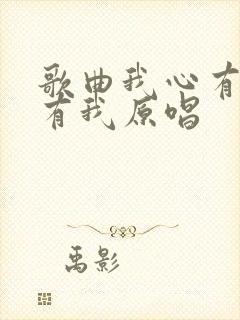 歌曲我心有
有我原唱
禹影